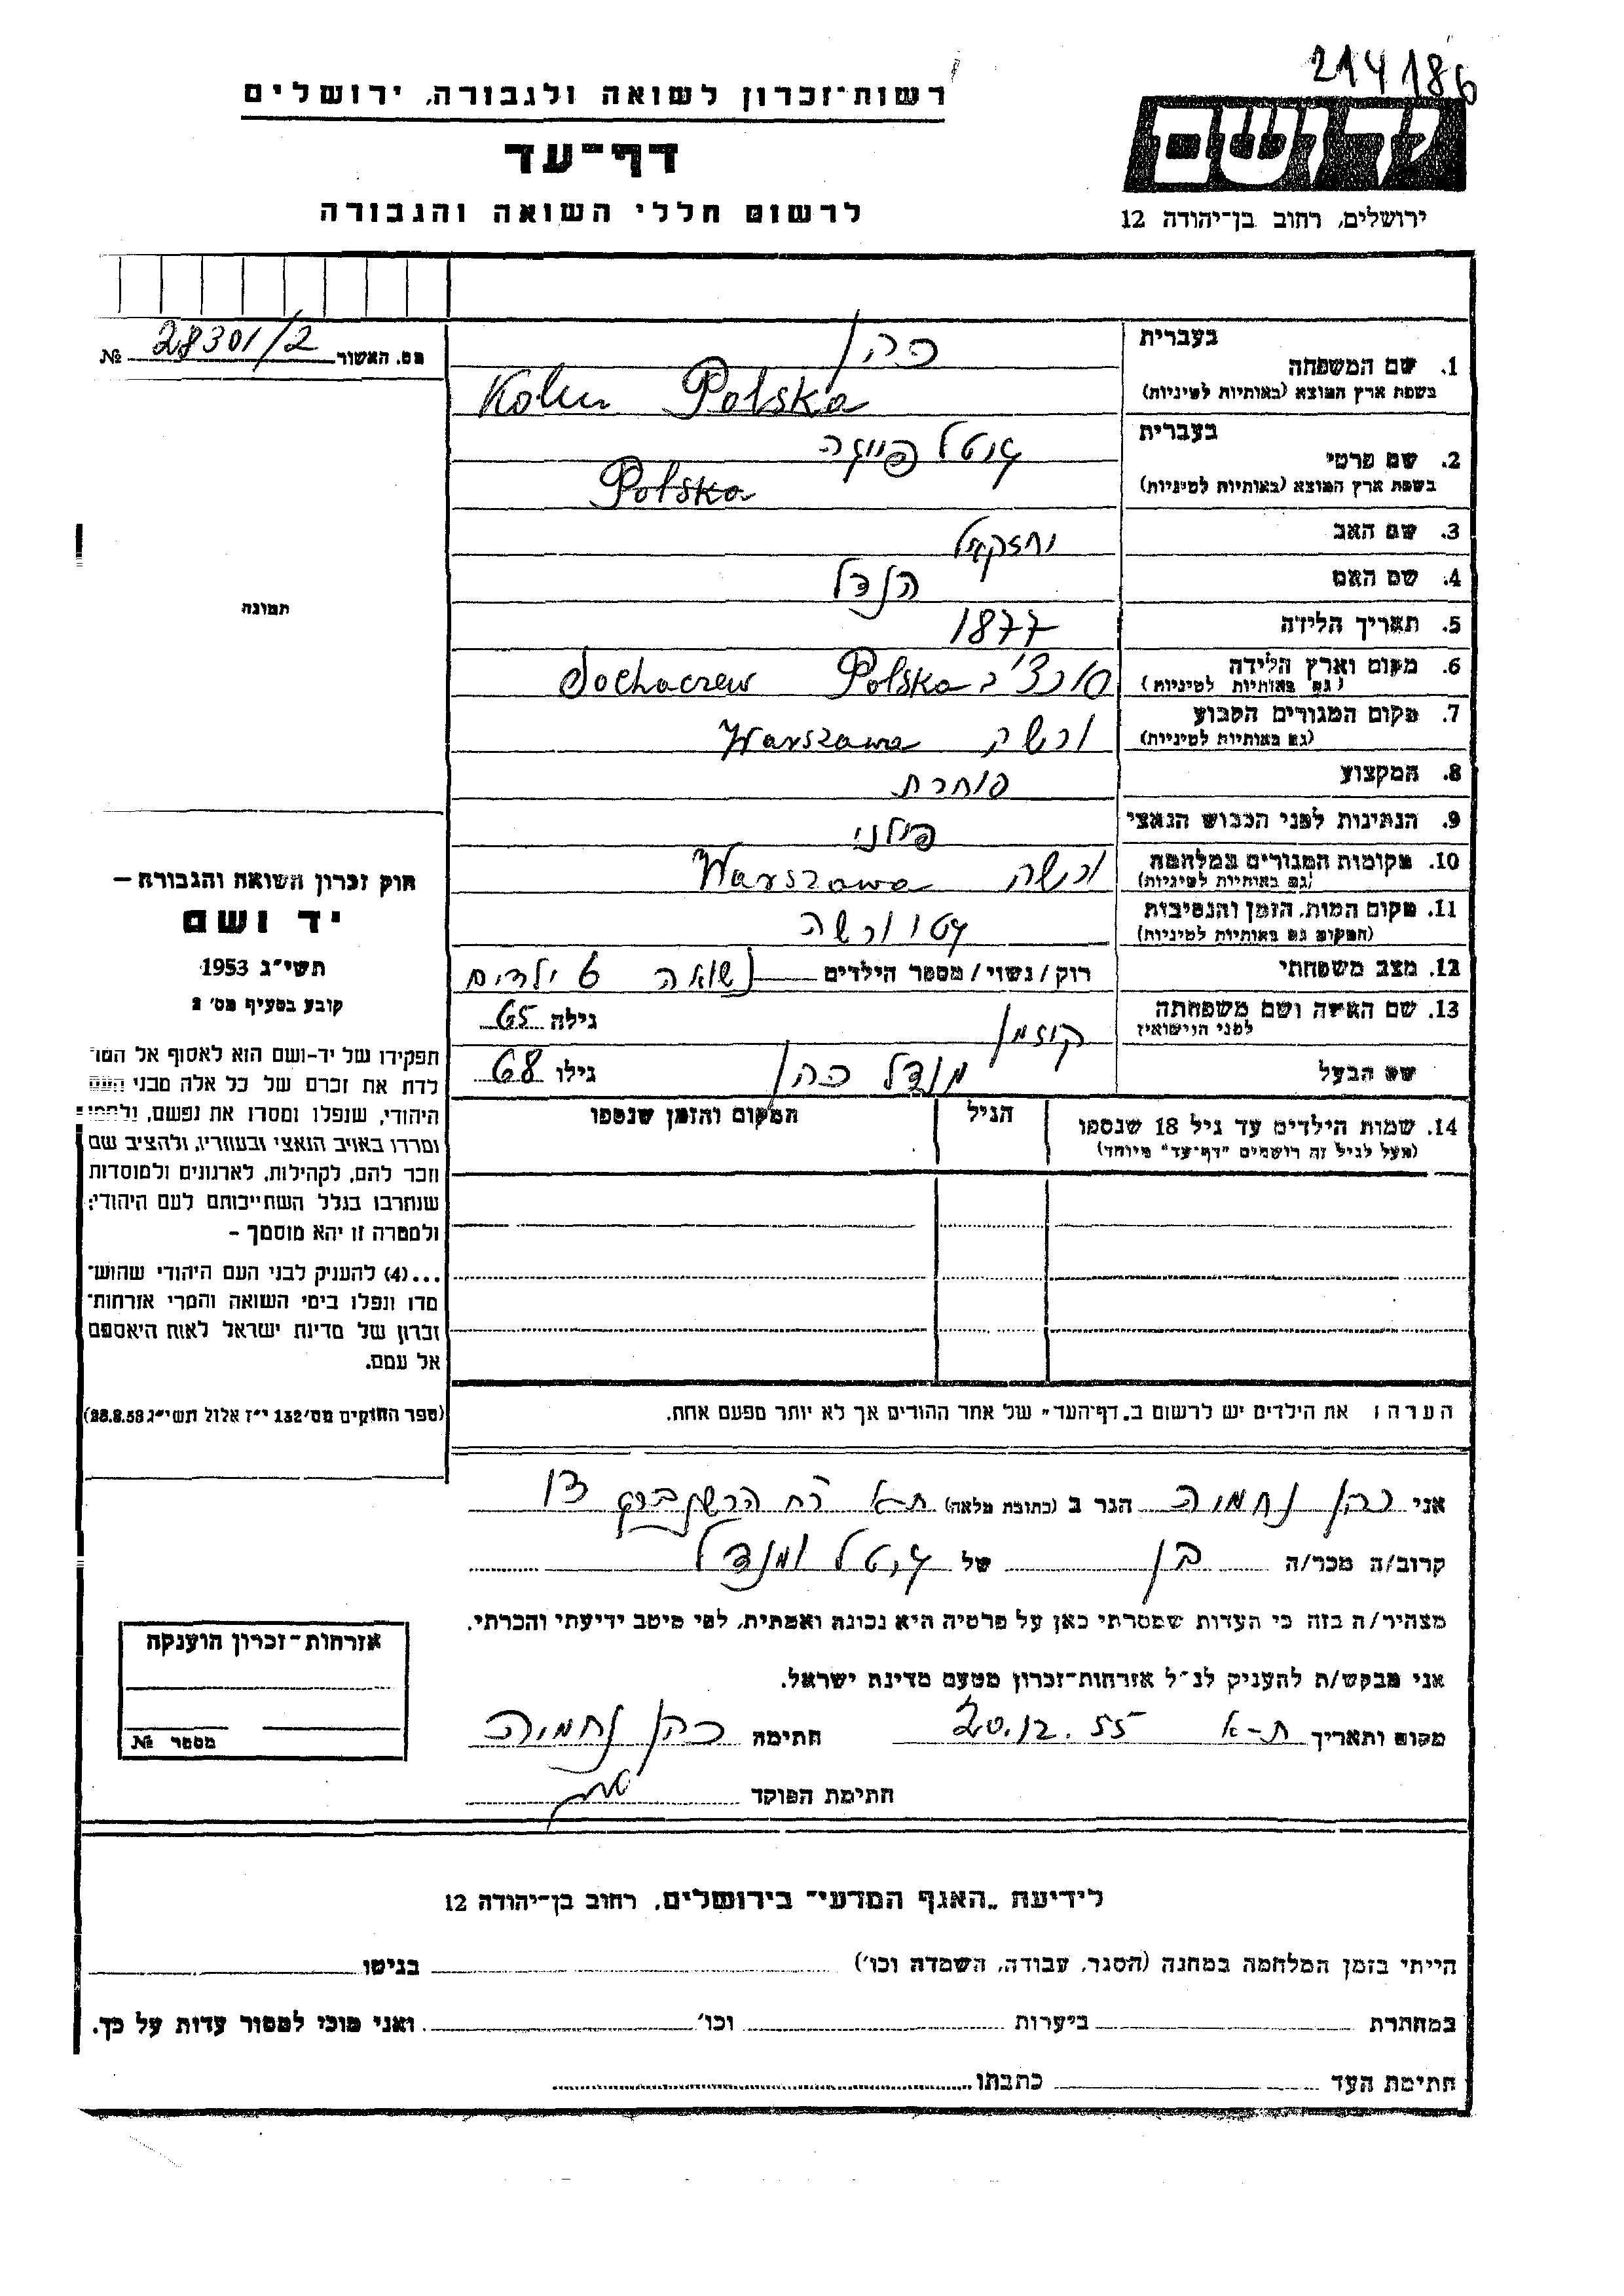 214186
רשות־זכרון לשואה ולגבורה, ירושלים
דף־עד
לרשום חללי השואה והגבורה
ידושם
ירושלים, רחוב בן־יהודה 12
מס. האשור 28301/2 №
בעברית
1. שם המשפחה כהן
בשפת ארץ המוצא (באותיות לטיניות) Kohn Polska
בעברית
2. שם פרטי גיטל פייגה
בשפת ארץ המוצא (באותיות לטיניות) Polska
3. שם האב יחזקאל
4. שם האם הנדל
5. תאריך הלידה 1877
6. מקום וארץ הלידה Sochaczew Polska
(גם באותיות לטיניות)
7. מקום המגורים הקבוע ורשה Warszawa
(גם באותיות לטיניות)
8. המקצוע סוחרת
9. הנתינות לפני הכבוש הנאצי פולני
10. מקומות המגורים במלחמה ורשה Warszawa
(גם באותיות לטיניות)
11. מקום המות, הזמן והנסיבות גטו ורשה
(המקום גם באותיות לטיניות)
12. מצב משפחתי רוק/נשוי/מספר הילדים נשואה 6 ילדים
13. שם האשה ושם משפחתה גילה 65
לפני הנישואין
שם הבעל מנדל כהן גילו 68
14. שמות הילדים עד גיל 18 שנספו הגיל המקום והזמן שנספו
(מעל לגיל זה רושמים "דף־עד" מיוחד)
הערה: את הילדים יש לרשום ב„דף־העד" של אחד ההורים אך לא יותר מפעם אחת.
תמונה
חוק זכרון השואה והגבורה —
יד ושם
תשי"ג 1953
קובע בסעיף מס' 2
תפקידו של יד־ושם הוא לאסוף אל המו
לדת את זכרם של כל אלה מבני העם
היהודי, שנפלו ומסרו את נפשם, נלחמו
ומרדו באויב הנאצי ובעוזריו, ולהציב שם
וזכר להם, לקהילות, לארגונים ולמוסדות
שנחרבו בגלל השתייכותם לעם היהודי;
ולמטרה זו יהא מוסמך —
...(4) להעניק לבני העם היהודי שהוש־
מדו ונפלו בימי השואה והמרי אזרחות־
זכרון של מדינת ישראל לאות היאספם
אל עמם.
(ספר החוקים מס' 132 י"ז אלול תשי"ג 28.8.53)
אני כהן נחמיה הגר ב (כתובת מלאה) ת־א רח
קרוב/ה מכר/ה בן של גיטל ומנדל
מצהיר/ה בזה כי העדות שמסרתי כאן על פרטיה היא נכונה ואמתית, לפי מיטב ידיעתי והכרתי.
אני מבקש/ת להעניק לנ"ל אזרחות־זכרון מטעם מדינת ישראל.
מקום ותאריך ת־א 20.12.55 חתימה כהן נחמיה
חתימת הפוקד
אזרחות־זכרון הוענקה
מספר №
לידיעת „האגף המדעי" בירושלים, רחוב בן־יהודה 12
הייתי בזמן המלחמה במחנה (הסגר, עבודה, השמדה וכו') בגיטו
במחתרת ביערות וכו' ואני מוכן למסור עדות על כך.
חתימת העד כתבתו